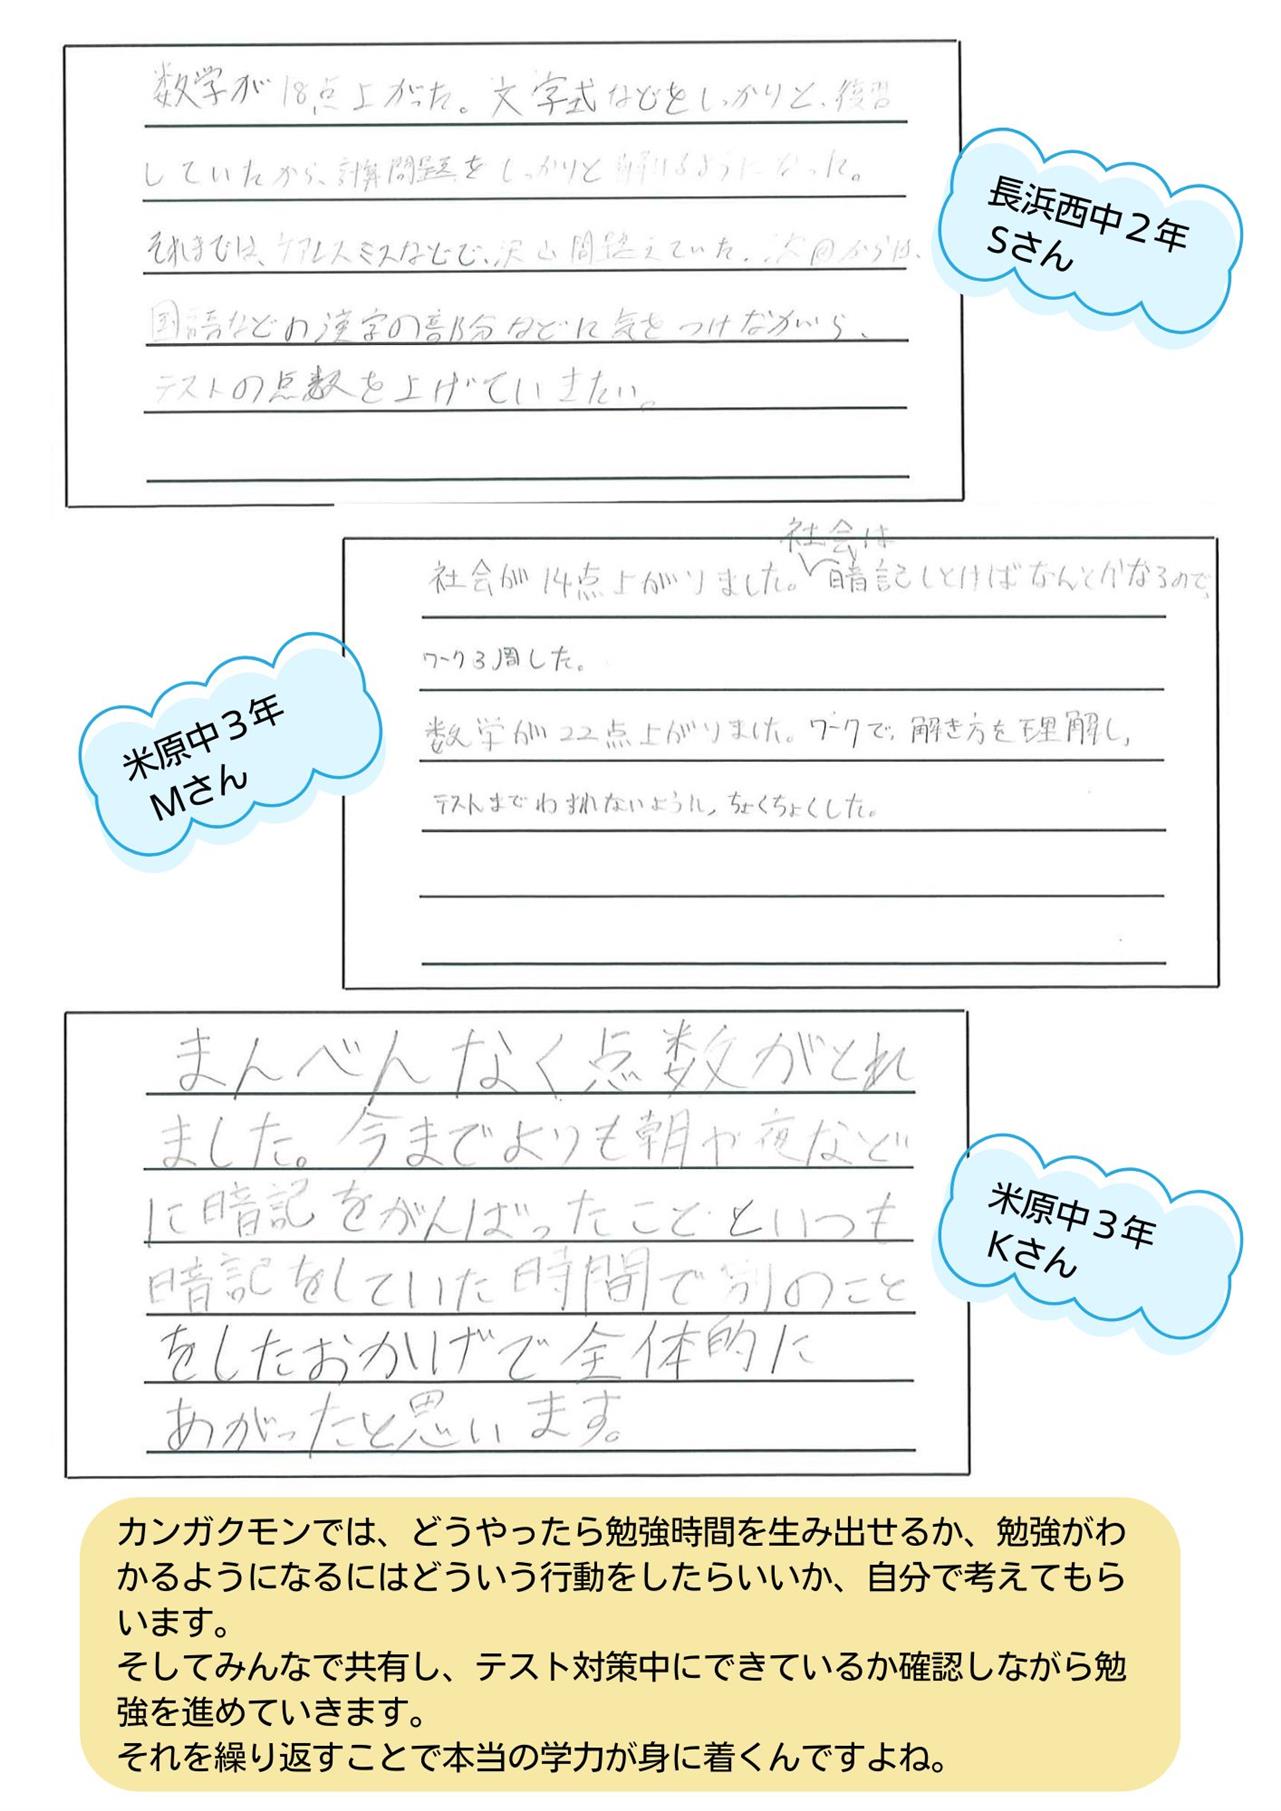 数学が18点上がった。文字式などをしっかりと、復習
していたから、計算問題をしっかりと解けるようになった。
それまでは、ケアレスミスなどで、沢山間違えていた。次回からは、
国語などの漢字の部分などに気をつけながら、
テストの点数を上げていきたい。
長浜西中２年
Sさん
社会は
社会が14点上がりました。暗記しとけばなんとかなるので、
ワーク3周した。
数学が22点上がりました。ワークで、解き方を理解し、
テストまでわすれないように、ちょくちょくした。
米原中３年
Mさん
まんべんなく点数がとれ
ました。今までよりも朝や夜など
に暗記をがんばったこと。といつも
暗記をしていた時間で別のこと
をしたおかげで全体的に
あがったと思います。
米原中３年
Kさん
カンガクモンでは、どうやったら勉強時間を生み出せるか、勉強がわ
かるようになるにはどういう行動をしたらいいか、自分で考えてもら
います。
そしてみんなで共有し、テスト対策中にできているか確認しながら勉
強を進めていきます。
それを繰り返すことで本当の学力が身に着くんですよね。